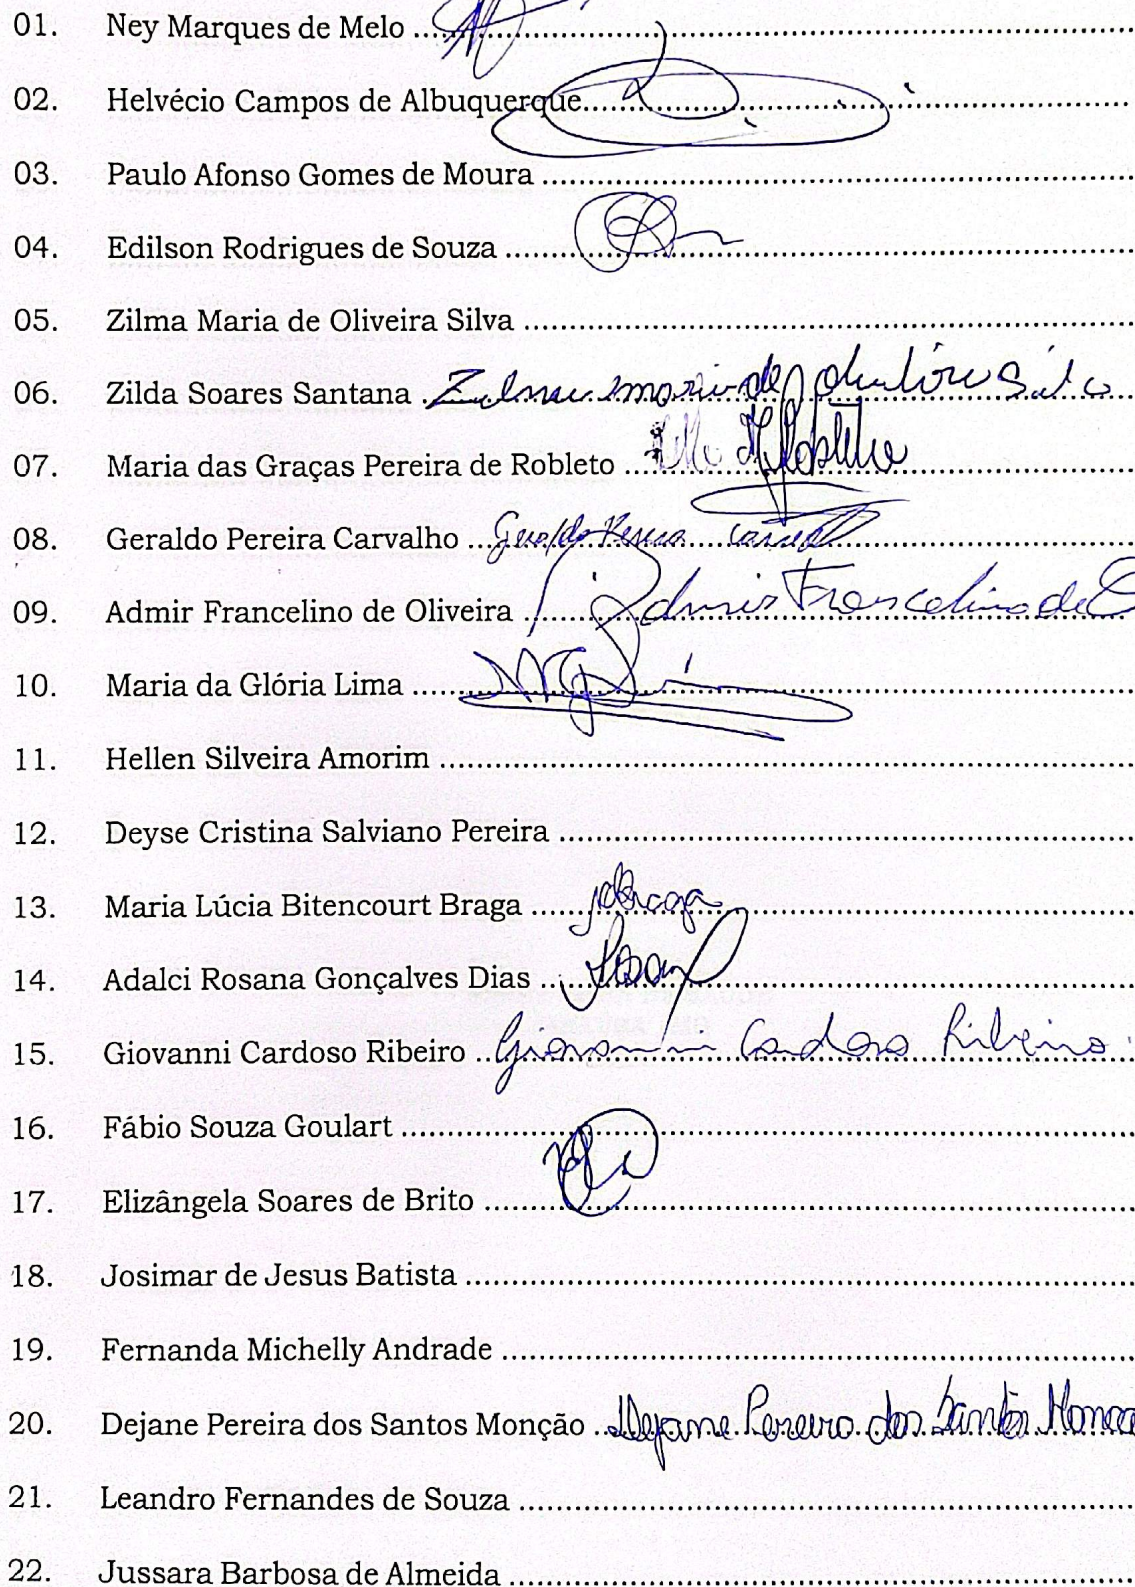 01. Ney Marques de Melo
02. Helvécio Campos de Albuquerque
03. Paulo Afonso Gomes de Moura
04. Edilson Rodrigues de Souza
05. Zilma Maria de Oliveira Silva
06. Zilda Soares Santana Zilma maria de oliveira Silva
07. Maria das Graças Pereira de Robleto
08. Geraldo Pereira Carvalho Geraldo Pereira Carvalho
09. Admir Francelino de Oliveira Admir Francelino de O
10. Maria da Glória Lima
11. Hellen Silveira Amorim
12. Deyse Cristina Salviano Pereira
13. Maria Lúcia Bitencourt Braga
14. Adalci Rosana Gonçalves Dias
15. Giovanni Cardoso Ribeiro Giovanni Cardoso Ribeiro
16. Fábio Souza Goulart
17. Elizângela Soares de Brito
18. Josimar de Jesus Batista
19. Fernanda Michelly Andrade
20. Dejane Pereira dos Santos Monção Dejane Pereira dos Santos
21. Leandro Fernandes de Souza
22. Jussara Barbosa de Almeida